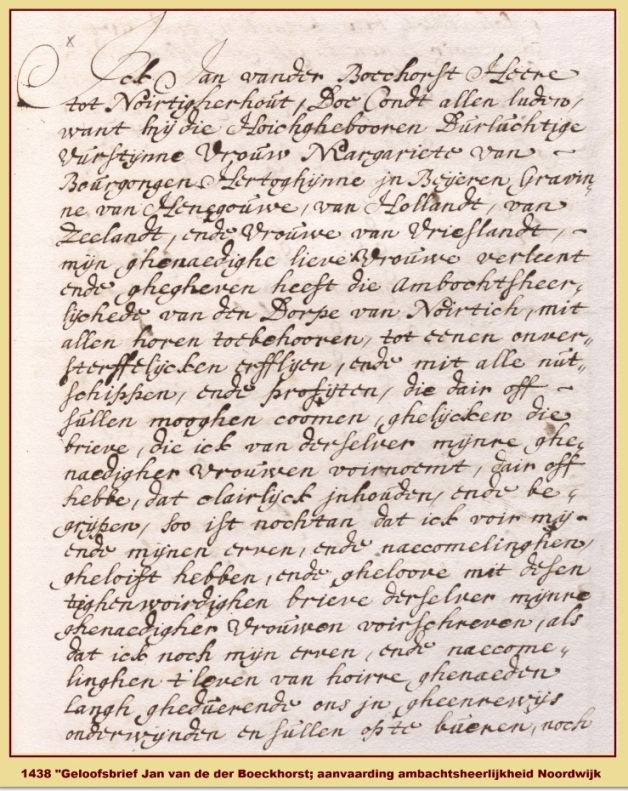 x
Ick Jan vander Boechorst Heere
tot Noirtigherhout, Doe Condt allen luden,
want mij die Hoichghebooren Durluchtige
Vurstynne Vrouw Margariete van
Bourgongen Hertoghijnne jn Beijeren Gravin„
ne van Henegouwe, van Hollandt, van
Zeelandt, ende Vrouwe van Vrieslandt,
mijn ghenaedighe lieve Vrouwe verleent
ende ghegheven heeft die Ambochtsheer„
lijchede van den Dorpe van Noirtich, mit
allen horen toebehooren, tot eenen onver„
sterffelijcken erfflijen, ende mit alle nut„
schippen, ende profijten, die dair off
sullen mooghen coomen, ghelijcken die
brieve, die ick van derselver mijnre ghe„
naedigher Vrouwen voirnoemt, dair off
hebbe, dat clairlijck jnhouden, ende be„
grijpen, soo ist nochtan dat ick voir mij
ende mijnen erven, ende naccomelinghen,
gheloift hebben, ende gheloove mit desen
tieghenwoirdighen brieve derselver mijnre
ghenaedigher Vrouwen voirschreven, als
dat ick noch mijn erven, ende naccome„
linghen t'leven van hoirre ghenaeden
langh gheduerende ons jn gheenrewijs
onderwijnden en sullen op te bueren, noch
1438 "Geloofsbrief Jan van de der Boeckhorst; aanvaarding ambachtsheerlijkheid Noordwijk